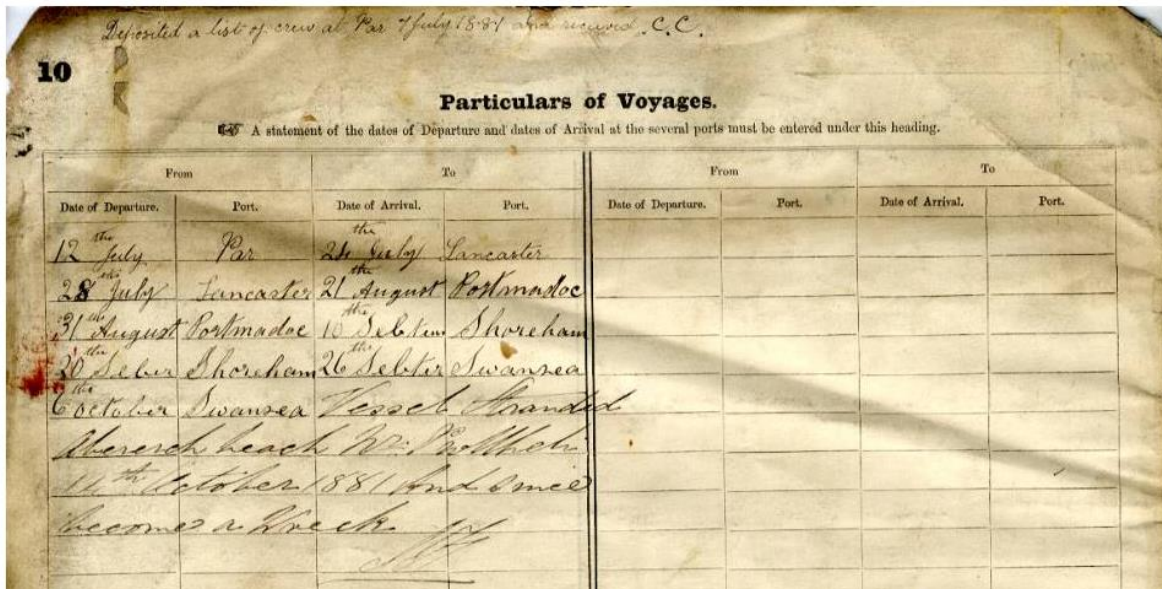 Deposited a list of crew at Par 7 July 1881 and received C.C.
10
Particulars of Voyages.
☞ A statement of the dates of Departure and dates of Arrival at the several ports must be entered under this heading.
From To From To
Date of Departure. Port. Date of Arrival. Port. Date of Departure. Port. Date of Arrival. Port.
12 the July Par 24 the July Lancaster
28 the July Lancaster 21 the August Portmadoc
31 August Portmadoc 10 the Sebtem Shoreham
20 the Seber Shoreham 26 the Sebter Swansea
6 the October Swansea Vessel Stranded
Abererch beach Nr. Pwllheli
14th October 1881 And Since
become a Wreck